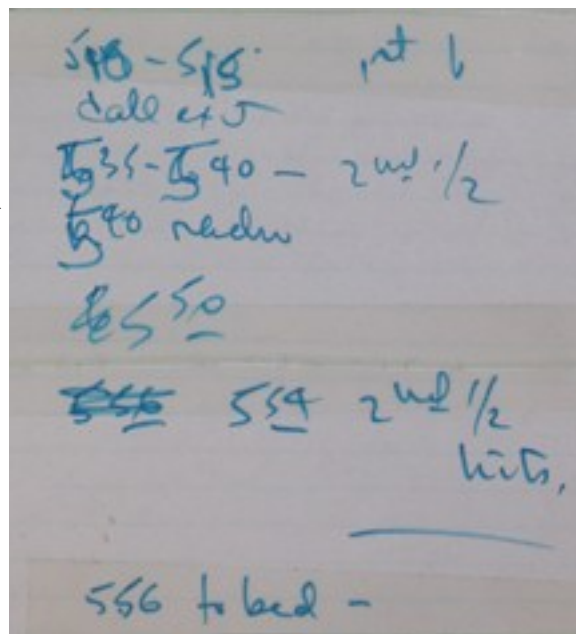 510 - 515 1st 1
Call ex 5
535 - 540 - 2nd 1/2
540 
550
556 554 2nd 1/2
hits,
556 to bed -